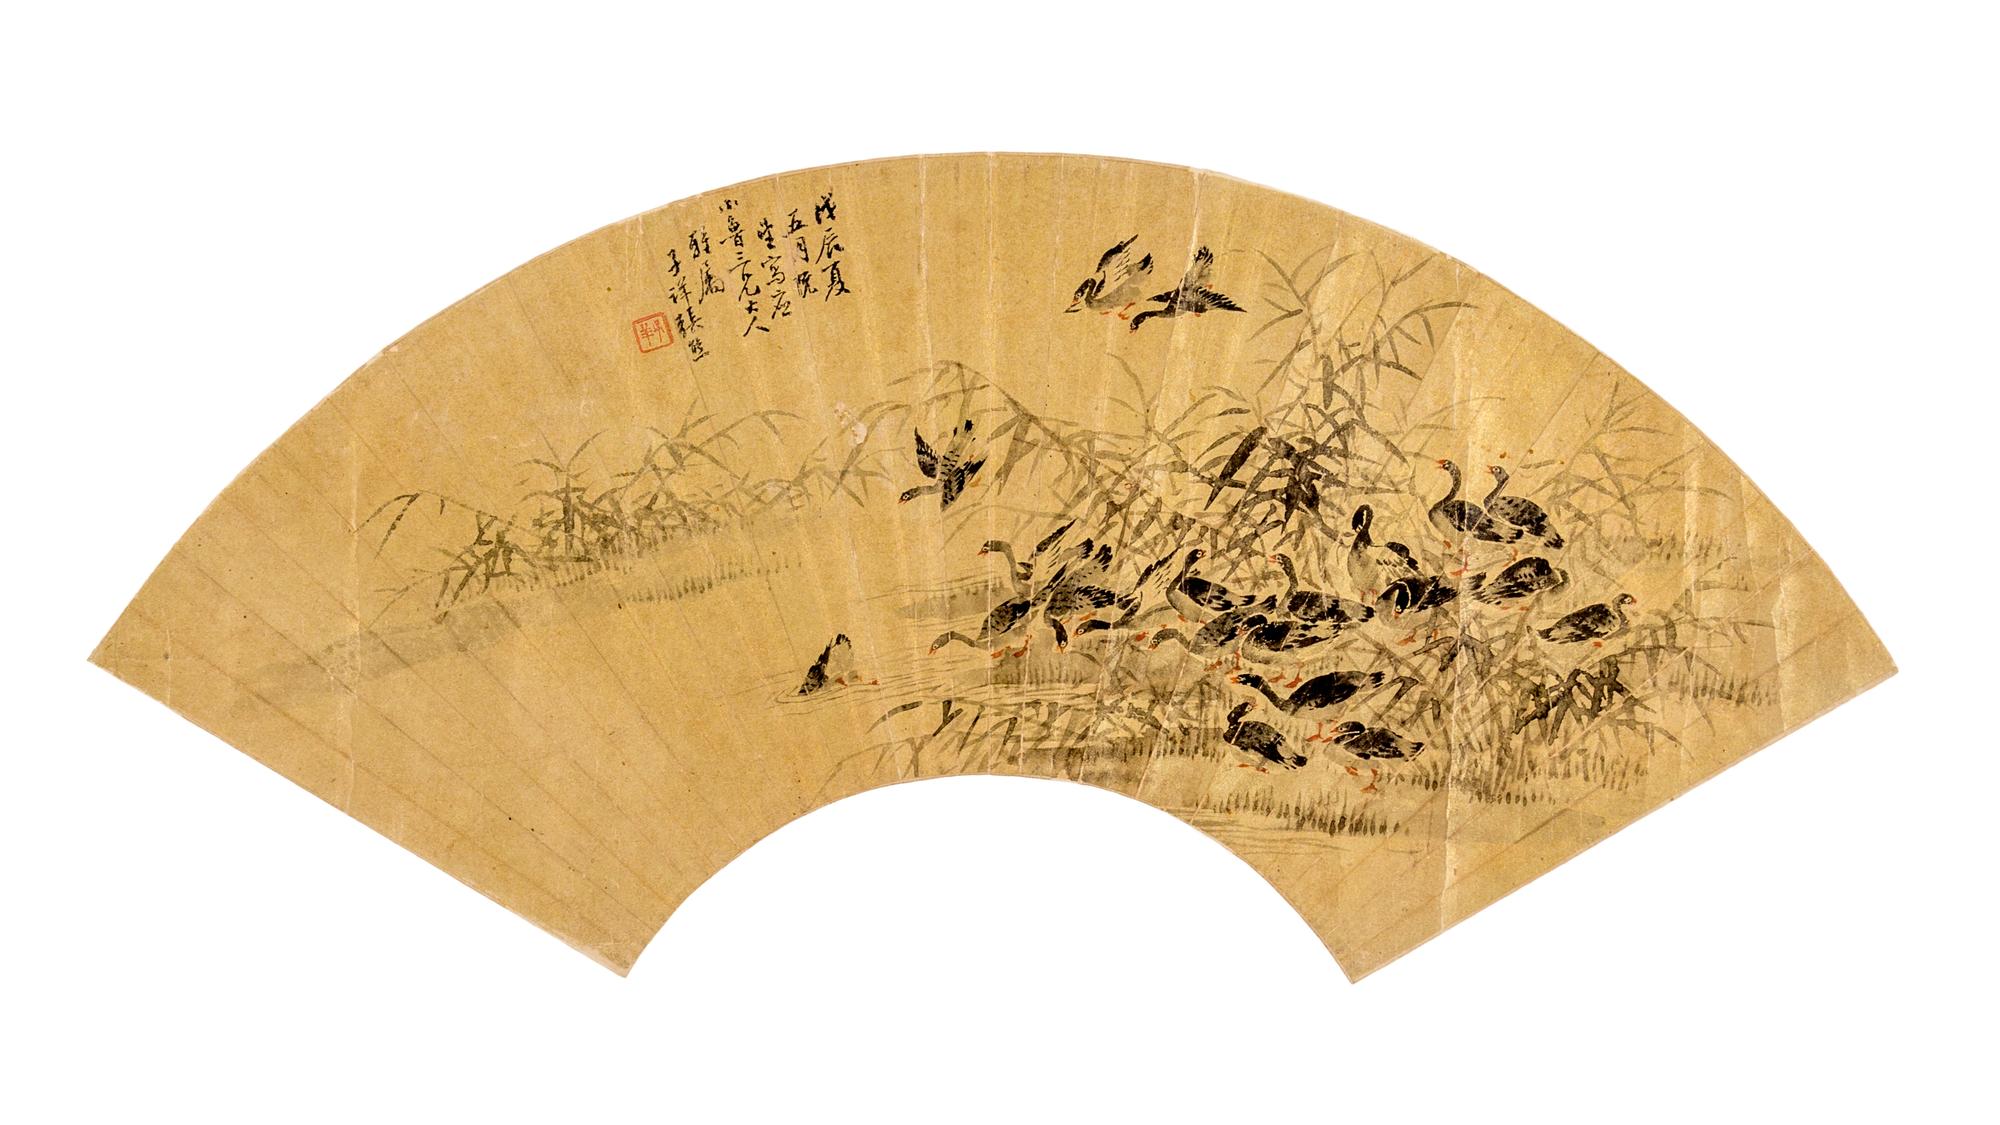 戊辰夏
五月既
望寫應
小魯三兄大人
雅屬
子祥張熊
子祥